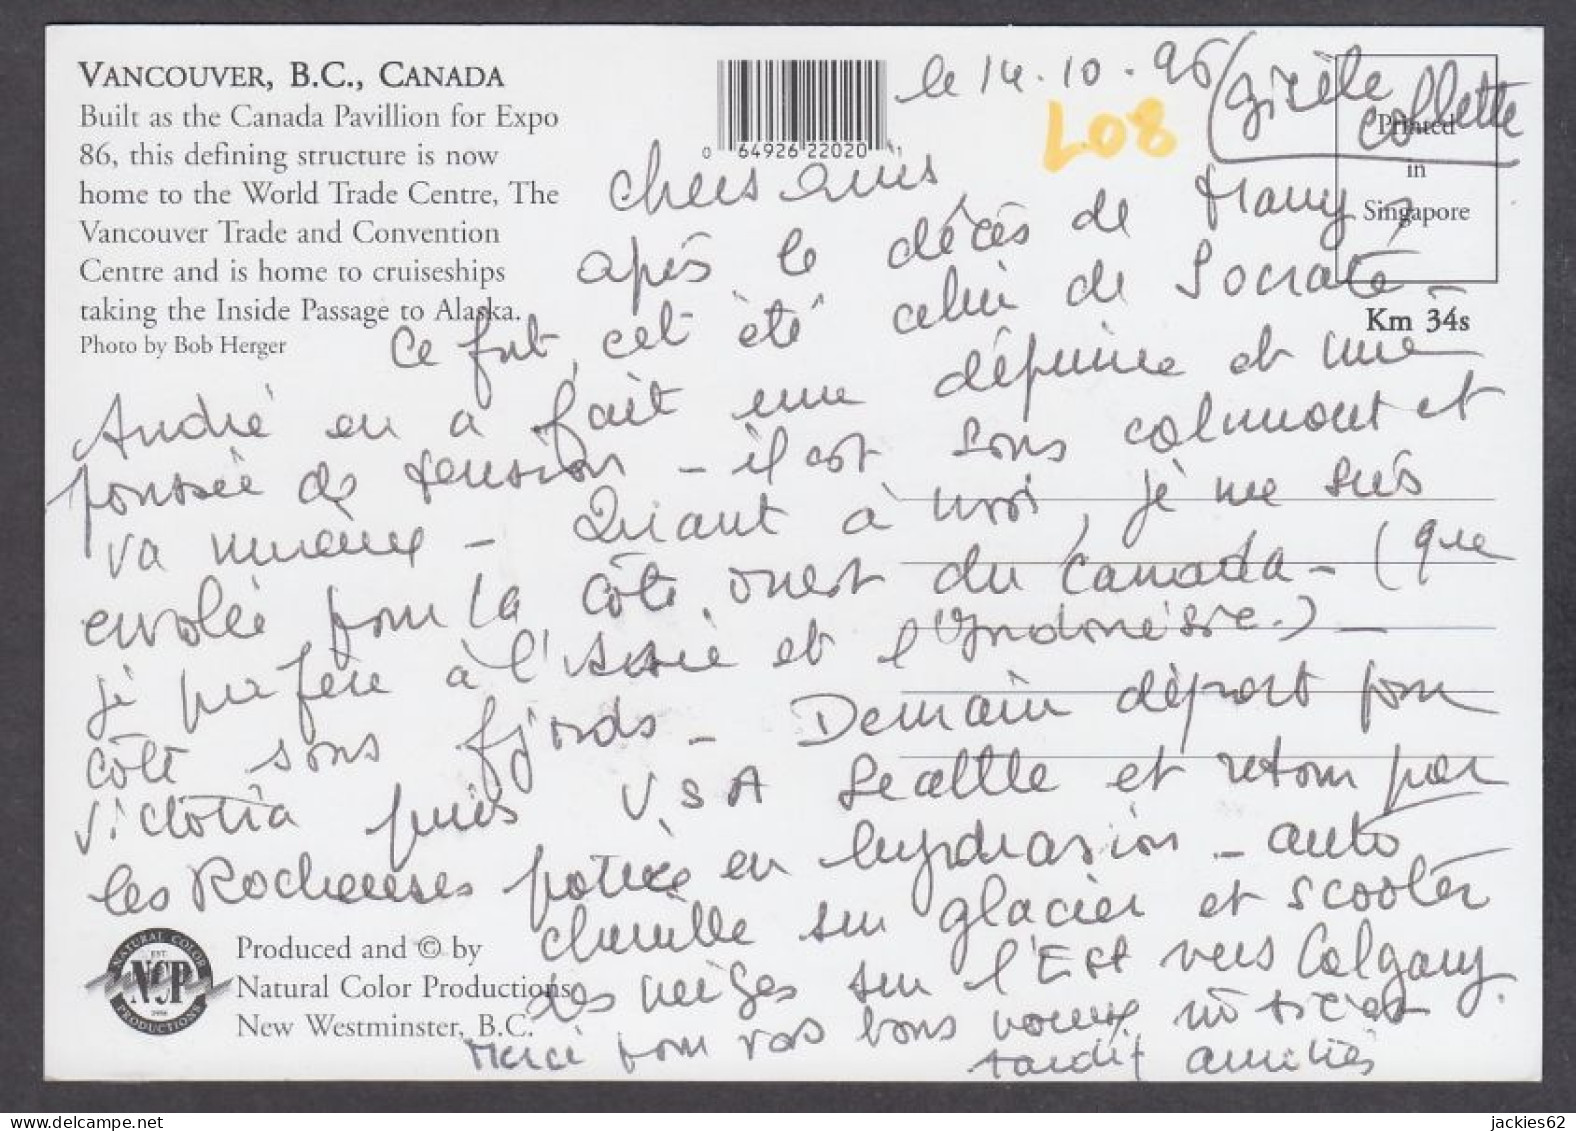 VANCOUVER, B.C., CANADA
Built as the Canada Pavillion for Expo
86, this defining structure is now
home to the World Trade Centre, The
Vancouver Trade and Convention
Centre and is home to cruiseships
taking the Inside Passage to Alaska.
Photo by Bob Herger
0 64926 22020 1
L08
Printed
in
Singapore
Km 34s
le 14.10.96 Gisèle
Collette
Chers amis,
après le décès de
Ce fut, cet été celui de Socrate -
André en a fait une déprime et une
poussée de tension - il est sous calmant et
va mieux - Quant à moi, je me suis
envolée pour la côte ouest du Canada - (que
je préfère à l'Asie et l'Indonésie.) -
côté sous fjords - Demain départ pour
Victoria puis USA Seattle et retour par
les Rocheuses en hydravion - auto
chenille sur glacier et scooter
des neiges sur l'Est vers Calgary.
Merci pour vos bons voeux
tardif amitiés
NATURAL COLOR
EST.
NCP
PRODUCTIONS
Produced and © by
Natural Color Productions
New Westminster, B.C.
jackies62